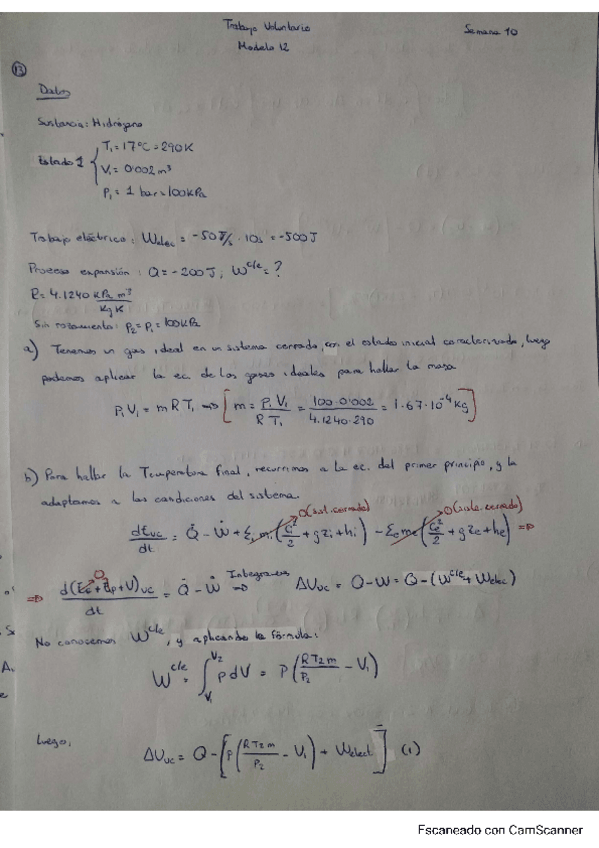 Trabajo Voluntario
Semana 10
Modelo 12
13
Datos
Sustancia: Hidrógeno
Estado 1 { T₁ = 17°C = 290K
V₁ = 0'002 m³
P₁ = 1 bar = 100 kPa
Trabajo eléctrico: Welec = -50 J/s · 10s = -500 J
Proceso expansión: Q = -200 J; W^c/e = ?
R = 4.1240 kPa m³ / Kg K
Sin rozamiento: P₂ = P₁ = 100 kPa
a) Tenemos un gas ideal en un sistema cerrado, con el estado inicial caracterizado, luego
podemos aplicar la ec. de los gases ideales para hallar la masa
P₁V₁ = m R T₁ ⇒ [ m = P₁V₁ / R T₁ = 100·0'002 / 4.1240·290 = 1'67·10⁻⁴ Kg ]
b) Para hallar la Temperatura final, recurrimos a la ec. del primer principio, y la
adaptamos a las condiciones del sistema.
0 (sist. cerrado) 0 (sist. cerrado)
dEvc/dt = Q̇ - Ẇ + Σᵢ ṁᵢ (cᵢ²/2 + gzᵢ + hᵢ) - Σₑ ṁₑ (cₑ²/2 + gzₑ + hₑ) ⇒
⇒ d(Ec + Ep + U)vc / dt = Q̇ - Ẇ ⇒ Integramos ΔUvc = Q - W = Q - (W^c/e + Welec)
0
No conocemos W^c/e, y aplicando la fórmula:
W^c/e = ∫ V₁ V₂ p dV = P (R T₂ m / P₂ - V₁)
Luego,
ΔUvc = Q - [ P (R T₂ m / P₂ - V₁) + Welect ] (1)
Escaneado con CamScanner